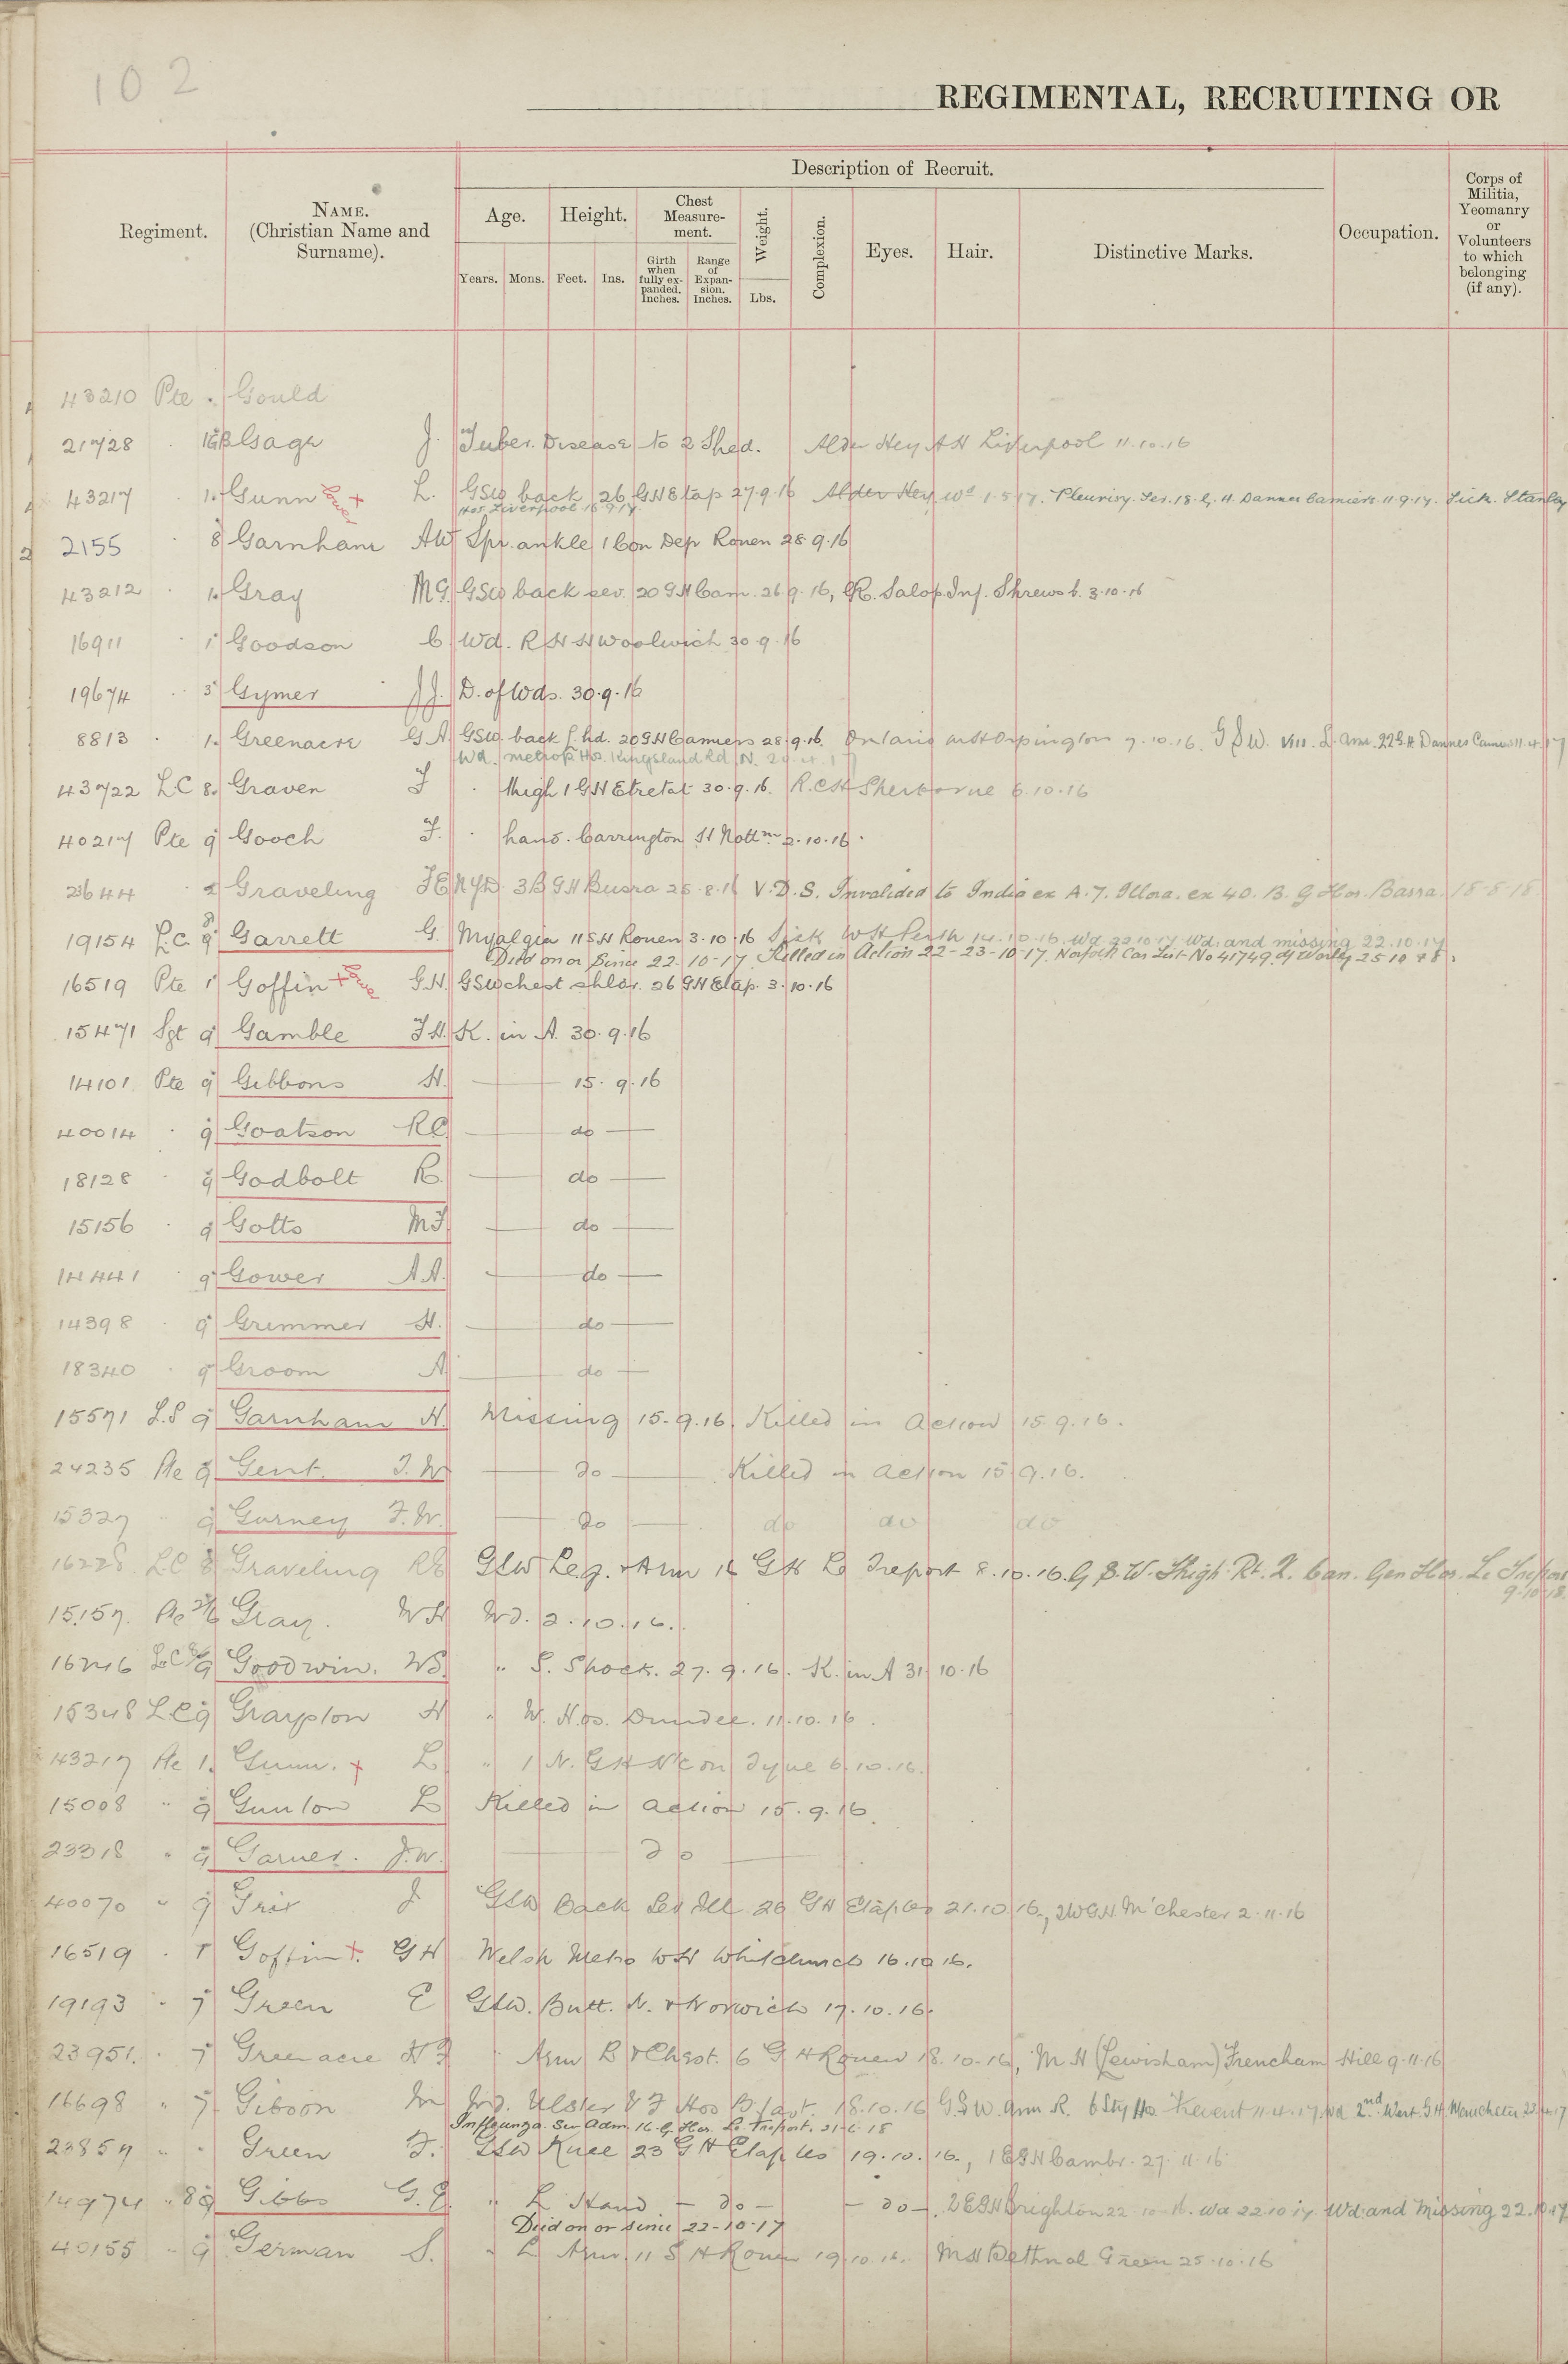 102
REGIMENTAL, RECRUITING OR
Description of Recruit.
Regiment.
NAME.
(Christian Name and
Surname).
Age.
Height.
Chest
Measure-
ment.
Weight.
Complexion.
Eyes.
Hair.
Distinctive Marks.
Occupation.
Corps of
Militia,
Yeomanry
or
Volunteers
to which
belonging
(if any).
Years.
Mons.
Feet.
Ins.
Girth
when
fully ex-
panded.
Inches.
Range
of
Expan-
sion.
Inches.
Lbs.
43210 Pte . Gould
21728 . Gage J. Tuber. Disease to 2 Shed. Alder Hey AH Liverpool 11.10.16
43217 . 1. Gunn Lower + L. GSW back 26 GH Etap 27.9.16 Alder Hey Wd 1.5.17. Pleurisy. Ser. 18. G. H. Dannes Camiers. 11.9.17. Sick. Stanley
Hos. Liverpool 16.9.17.
2 2155 . 8 Garnham AW Spr. ankle 1 Con Dep Rouen 28.9.16
43212 . 1. Gray MG. GSW back sev. 20 GH Cam. 26.9.16, R. Salop. Inf. Shrewsb. 3.10.16
16911 . 1 Goodson C Wd. R H H Woolwich 30.9.16
19674 . . 5 Gymer JJ. D. of Wds. 30.9.16
8813 . 1. Greenacre GA. GSW. back f. hd. 20 GH Camiers 28.9.16. Ontario Orpington 7.10.16. GSW. L. Arm. 22 G.H. Dannes Camiers 11.4.17
Wd. Metrop. Hos. Kingsland Rd. N. 20.4.17
43722 L.C 8. Graven J . thigh 1 GH Etretat 30.9.16. R.C.H Sherborne 6.10.16
40217 Pte 9 Gooch F. . hand. Carrington St Nottm 2.10.16.
23644 . 2 Graveling FE NYD. 3B GH Busra 25.8.16 V.D.S. Invalided to India ex A.T. Illora. ex 40. B. G Hos. Basra. 18-5-18
19154 L.C. 9 Garrett G. Myalgia 11 SH Rouen 3.10.16 Sick WH Perth 14.10.16. Wd 22.10.17 Wd. and missing 22.10.17
Died on or Since 22-10-17. Killed in Action 22-23-10-17. Norfolk Cas List No 41749
16519 Pte 1 Goffin + Lower G.H. GSW chest shldr. 26 GH Etap. 3.10.16
15471 Sgt 9 Gamble FH. K. in A. 30.9.16
14101. Pte 9 Gibbons H. — 15.9.16
40014 . 9 Goatson RC — do —
18128 . 9 Godbolt R. — do —
15156 . 9 Gotts MF — do —
14441 . 9 Gower AA. — do —
14398 . 9 Gremmer H. — do —
18340 . 9 Groom A — do —
15571 L.S 9 Garnham H. Missing 15.9.16. Killed in Action 15.9.16.
24235 Pte 9 Gent. J.W — do — Killed in Action 15.9.16.
15327 9 Gurney F.W. — do — do do do
16228 L.C 8 Graveling RE GSW Leg. & Arm 16 GH Le Treport 8.10.16. G.S.W. Thigh. Rt. 2. Can. Gen Hos. Le Treport
9-10-18
15157. Pte Gray. WH Wd. 2.10.16.
16246 L.C 9 Goodwin. WS. " S. Shock. 27.9.16. K. in A 31.10.16
15348 L.C 9 Grayston H " W. Hos. Dundee. 11.10.16.
43217 Pte 1. Gunn. + L " 1 N. GH N'C on Tyne 6.10.16.
15008 " 9 Gunton L Killed in action 15.9.16.
23318 " 9 Garner. J.W. — do —
40070 " 9 Grix J GSW Back 26 GH Etaples 21.10.16., 2WGH. M'chester 2.11.16
16519 . 1 Goffin +. GH Welsh Metro WH Whitchurch 16.10.16.
19193 . 7 Green E GSW. Butt. N. & Norwich 17.10.16.
23951. . 7 Greenacre H " Arm R & Chest. 6 GH Rouen 18.10.16, M H (Lewisham) Frencham Hill 9.11.16
16698 " 7 Gibson M Wd. Ulster V F Hos B'fast. 18.10.16 G.S.W. Arm R. 6 Sty Hos 11.4.17. Wd 2nd West. G.H. Manchester
Influenza. Adm. 16 G. Hos. Le Treport. 21-6-18
23857 " . Green F. GSW Knee 23 GH Etaples 19.10.16., 1 EGH Cambr. 27.11.16
14974 " 89 Gibbs G.E. " L Hand — do — — do —. 2EGH Brighton 22.10.16. Wd 22.10.17. Wd. and Missing 22.10.17
Died on or since 22-10-17
40155 " 9 German S. " L Arm. 11 S H Rouen 19.10.16. MH Bethnal Green 25.10.16